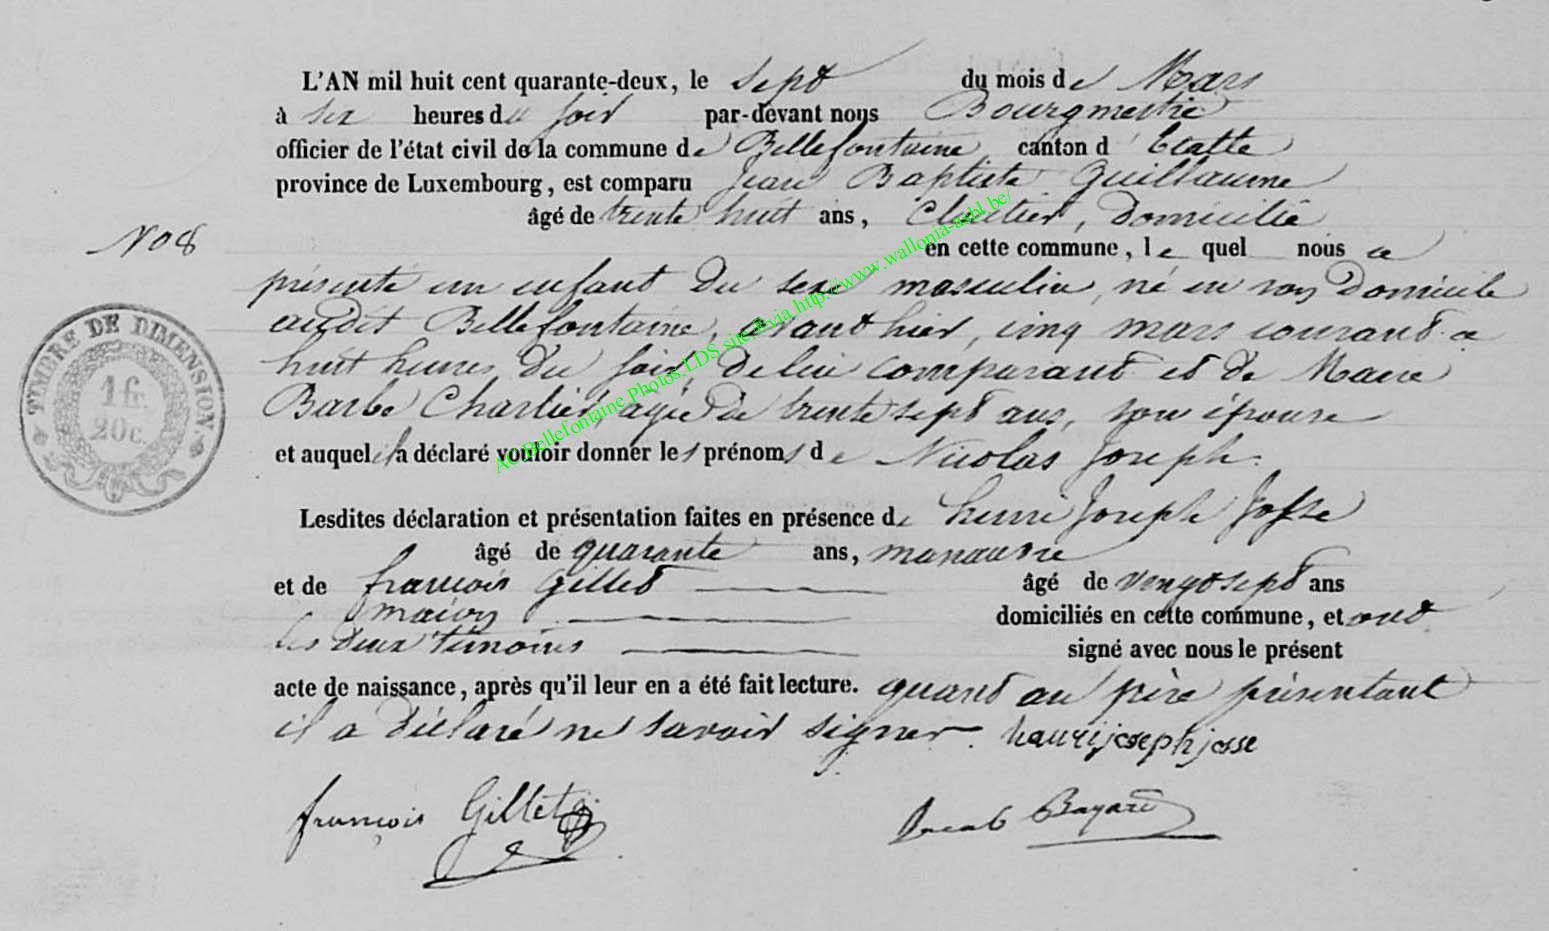 L'AN mil huit cent quarante-deux, le sept du mois de Mars
à six heures du soir par-devant nous Bourgmestre
officier de l'état civil de la commune de Bellefontaine canton d'Etalle
province de Luxembourg, est comparu Jean Baptiste Guillaume
âgé de trente huit ans, Cloutier, domicilié
No 8
en cette commune, lequel nous a
présenté un enfant du sexe masculin, né en son domicile
audit Bellefontaine, avant hier, cinq mars courant a
huit heures du soir, de lui comparant et de Marie
Barbe Charlier, agée de trente sept ans, son épouse
et auquel il a déclaré vouloir donner les prénoms de Nicolas Joseph.
TIMBRE DE DIMENSION
1 fr.
20 c.
Lesdites déclaration et présentation faites en présence de henri Joseph Josse
âgé de quarante ans, manœuvre
et de françois Gillet âgé de vingt sept ans
domiciliés en cette commune, et ont
les deux témoins signé avec nous le présent
acte de naissance, après qu'il leur en a été fait lecture. quant au père présentant
il a déclaré ne savoir signer. henrijosephjosse
françois Gillet Bayard
AC Bellefontaine Photos LDS site via http://www.wallonia-asbl.be/